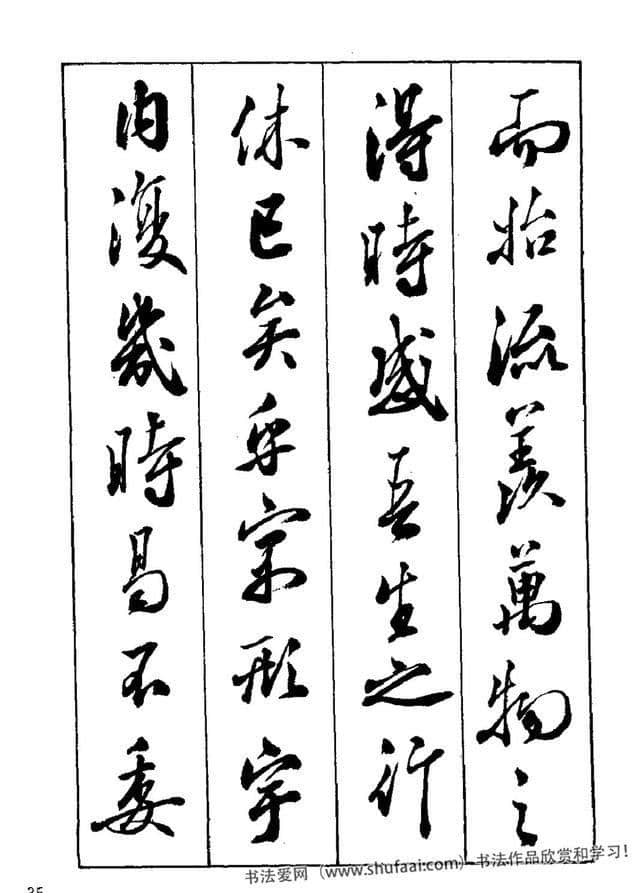 而始流羡萬物之
得時感吾生之行
休已矣乎寓形宇
内復幾時曷不委
书法爱网（www.shufaai.com）-书法作品欣赏和学习！